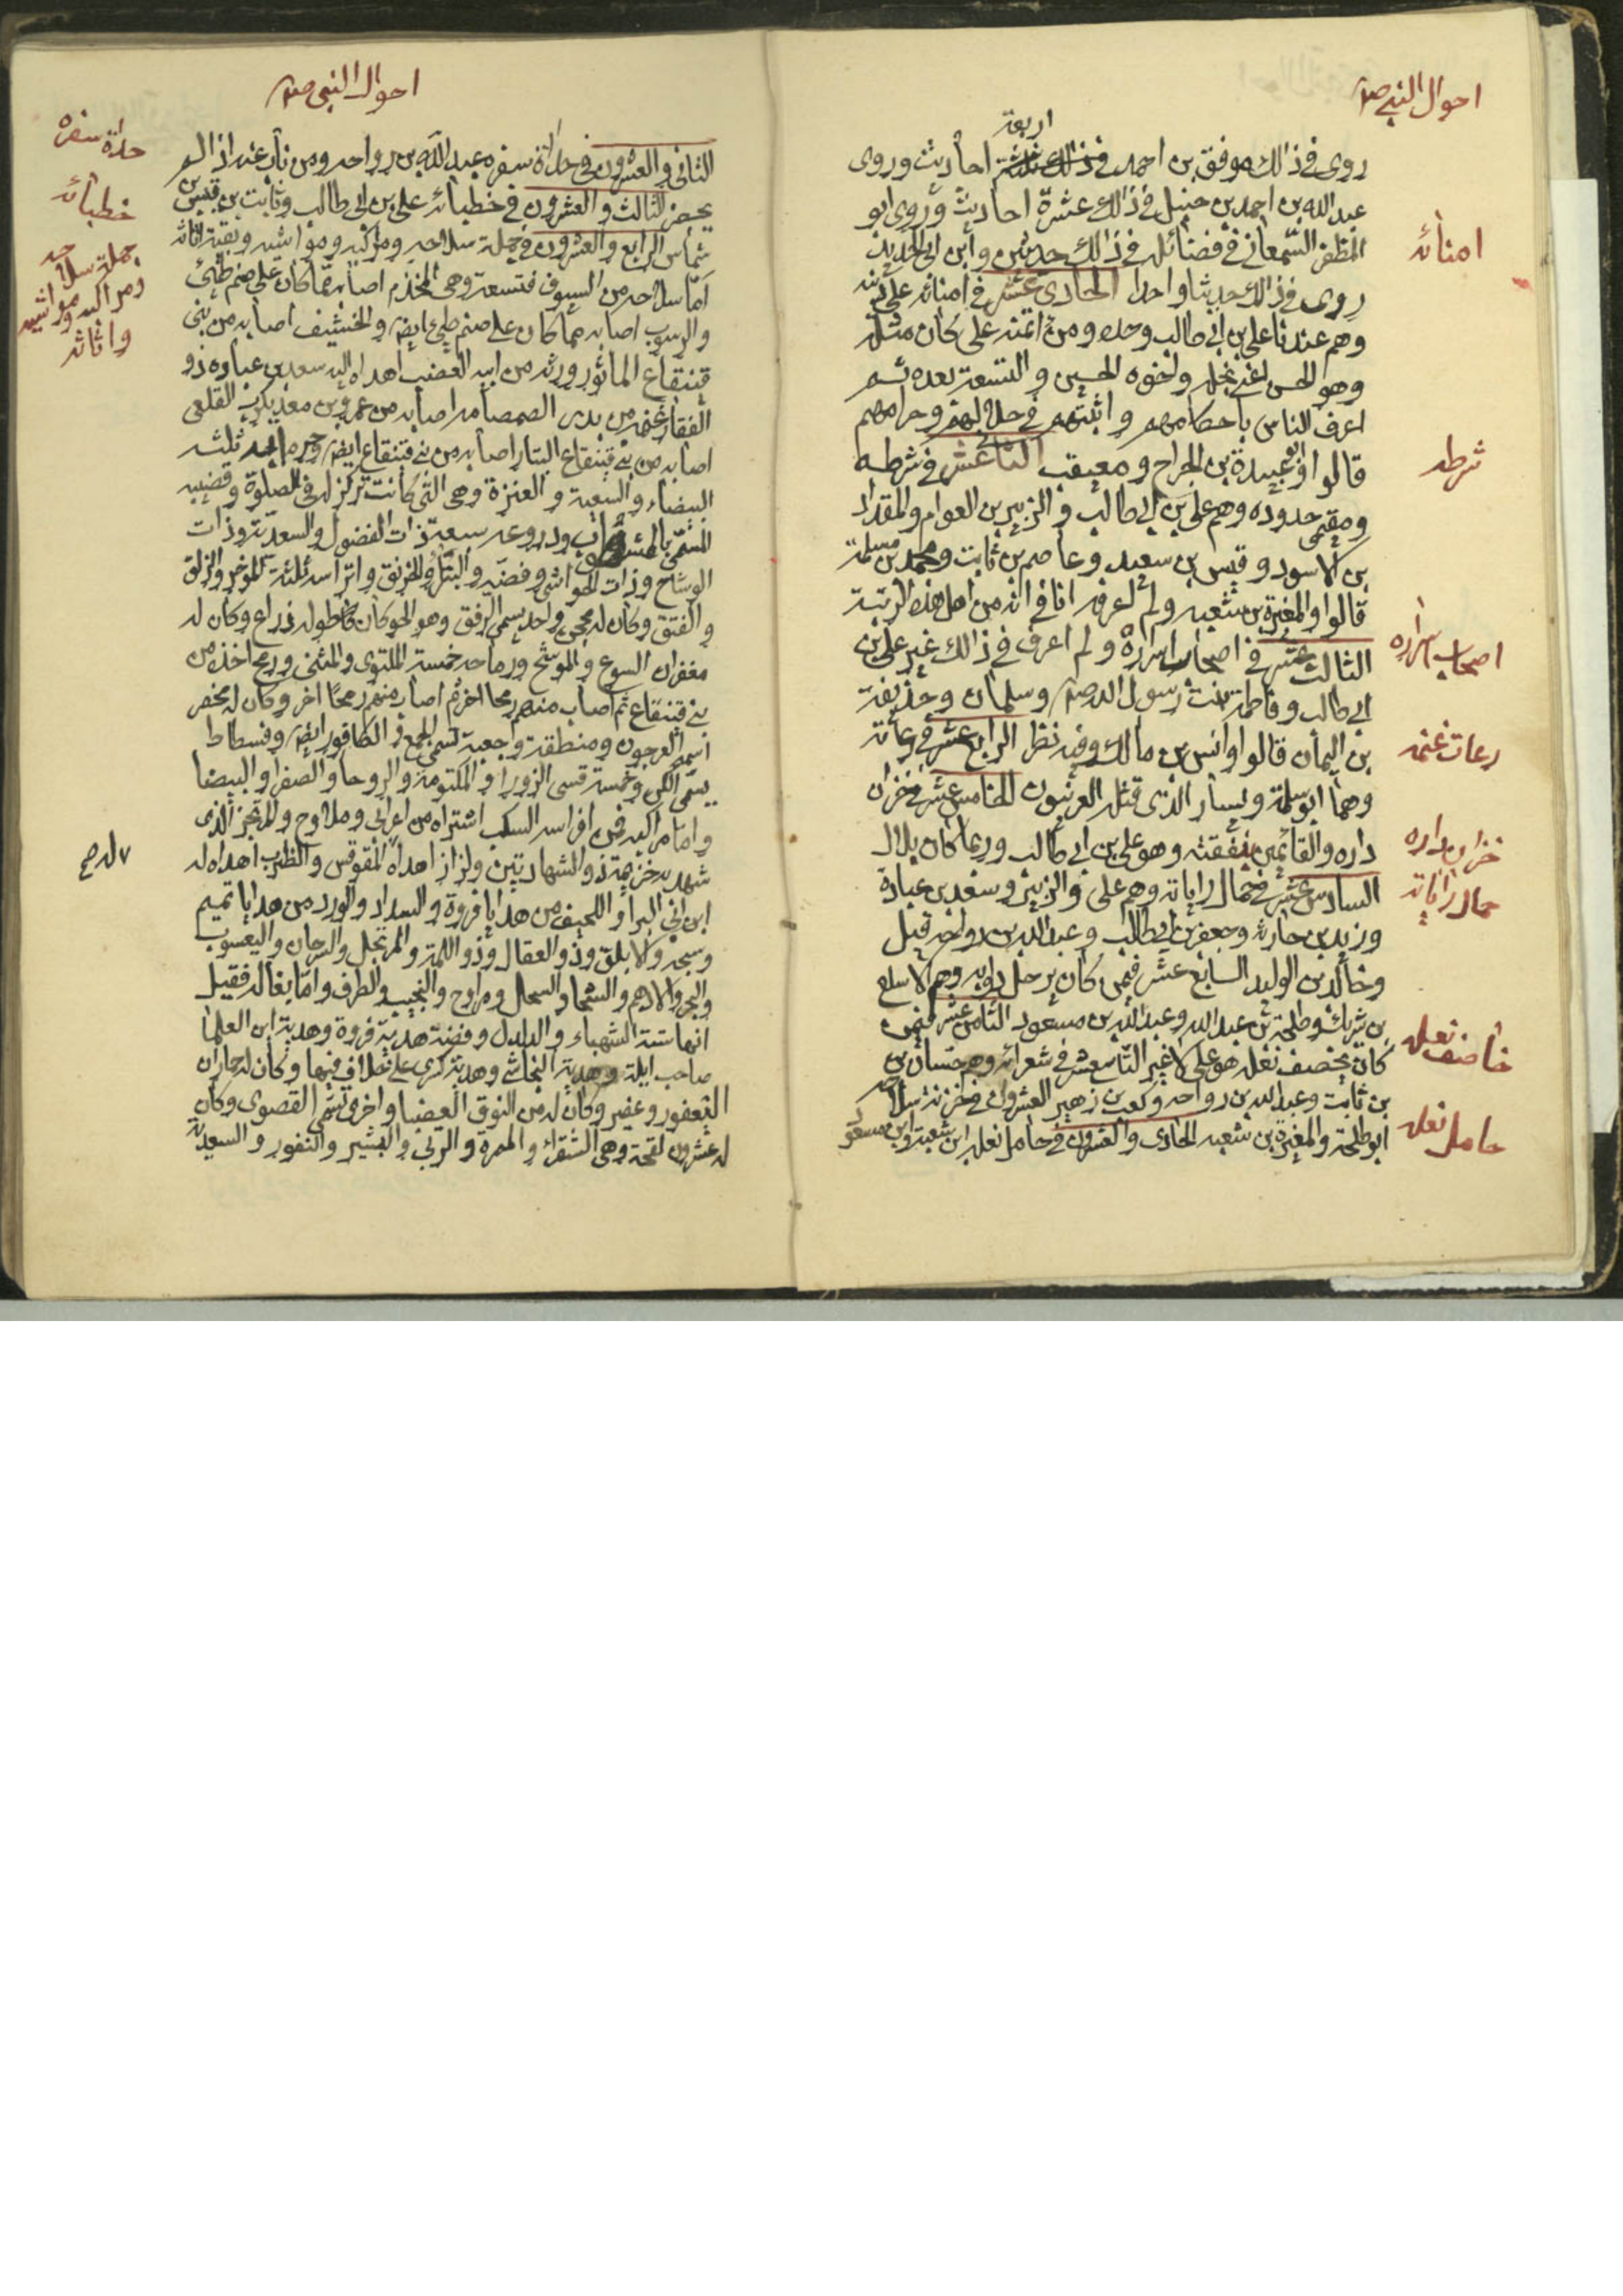 احوال النبي صلم
اربعة
روى في ذلك موفق بن احمد في ذلك احاديث وروى
عبد الله بن احمد بن حنبل في ذلك عشرة احاديث وروى ابو
المظفر السمعاني في فضائله في ذلك حديثين وابن ابي الحديد
روى في ذلك حديثا واحدا الحادي عشر في امنائه على
امنائه
وهم عندنا علي بن ابي طالب وحده ومن ائمنه علي كان مثله
وهو الحسن اعني نجله واخوه الحسين والتسعة بعده ثم
اعرف الناس باحكامهم واثبتهم في حلالهم وحرامهم
قالوا وابو عبيدة بن الجراح ومعيقب الثاني عشر في شرطه
شرطه
ومقيمي حدوده وهم علي بن ابي طالب والزبير بن العوام والمقداد
بن الاسود وقيس بن سعيد وعاصم بن ثابت ومحمد بن مسلمة
قالوا والمغيرة بن شعبه ولم اعرفه انا في انه من اهل هذه الرتبة
الثالث عشر في اصحاب اسراره ولم اعرف في ذلك غير علي بن
اصحاب اسراره
ابي طالب وفاطمة بنت رسول الله صلم وسلمان وحذيفة
بن اليمان قالوا وانس بن مالك وفيه نظر الرابع عشر في رعاته
رعات غنمه
وهما ابو سلمة ويسار الذي قتله العرنيون الخامس عشر في خزان
داره والقائمين بنفقته وهو علي بن ابي طالب وربما كان بلال
خزان داره
السادس عشر في حمال راياته وهم علي والزبير وسعد بن عبادة
حمال راياته
وزيد بن حارثه وجعفر بن ابي طالب وعبد الله بن رواحه قيل
وخالد بن الوليد السابع عشر فيمن كان يرحل دوابه وهم الاسلع
بن شريك وطلحة بن عبد الله وعبد الله بن مسعود الثامن عشر فيمن
كان يخصف نعله هو علي لا غير التاسع عشر في شعرائه وهم حسان بن
خاصف نعله
بن ثابت وعبد الله بن رواحه وكعب بن زهير العشرون في خزنة سلاحه
ابو طلحة والمغيرة بن شعبه الحادي والعشرون في حامل نعله ابن شعبة وابن مسعود
حامل نعله
احوال النبي صلم
الثاني والعشرون في حداة سفره عبد الله بن رواحه ومن ناب عنه اذا لم
حداة سفره
يحضر الثالث والعشرون في خطبائه علي بن ابي طالب وثابت بن قيس بن
خطبائه
شماس الرابع والعشرون في جملة سلاحه ومراكبه ومواشيه وبقية اثاثه
جملة سلاحه
ومراكبه ومواشيه
واثاثه
اما سلاحه من السيوف فتسعة وهي المخذم اصابه مما كان على صنم طيئ
والرسوب اصابه مما كان على صنم طيئ ايضا والخشيف اصابه من بني
قينقاع الماثور ورثه من ابيه العضب اهداه اليه سعد بن عباده ذو
الفقار غنمه من بدر الصمصامه اصابه من عمرو بن معديكرب القلعي
اصابه من بني قينقاع البتار اصابه من بني قينقاع ايضا وحرابه ثلثه
البيضاء والنبعة والعنزة وهي التي كانت تركز له في الصلوة وقضيبه
المسمى بالممشوق ودروعه سبعة ذات الفضول والسعدية وذات
الوشاح وذات الحواشي وفضه والبترا والخرنق واتراسه ثلثة الموخر والزلق
والفتق وكان له محجن واحد يسمى الرفق وهو الحو كان طوله ذراع وكان له
مغفران السبوع والموشح ورماحه خمسة الملتوي والمثنى ورمح اخذه من
بني قينقاع ثم اصاب منهم رمحا اخر ثم اصاب منهم رمحا اخر وكان له مخصر
اسمه العرجون ومنطقة وجعبة تسمى الجمع والكافور ايضا وفسطاط
يسمى الكن وخمسة قسي الزورا والمكتومة والروحا والصفرا والبيضا
واما مراكبه فمن افراسه السكب اشتراه من اعرابي وملاوح والمرتجز الذي
شهد به خزيمة ذو الشهادتين ولزاز اهداه المقوقس والظرب اهداه له
ابن ابي البرا واللحيف من هدايا فروة والسداد والورد من هدايا تميم
وسبحه والابلق وذو العقال وذو اللمة والمرتجل والسرحان واليعسوب
والبحر والادهم والشحا والسجل ومراوح والنجيب والطرف واما بغاله فقيل
انها ستة الشهباء والدلدل وفضة هدية فروة وهدية ابن العلما
صاحب ايلة وهدية النجاشي وهدية كسرى على خلاف فيها وكان له حماران
اليعفور وعفير وكان له من النوق العضبا واخرى تسمى القصوى وكان
له عشرون لقحة وهي الشقرا والمرة والربى والبشير والنفور والسعدية